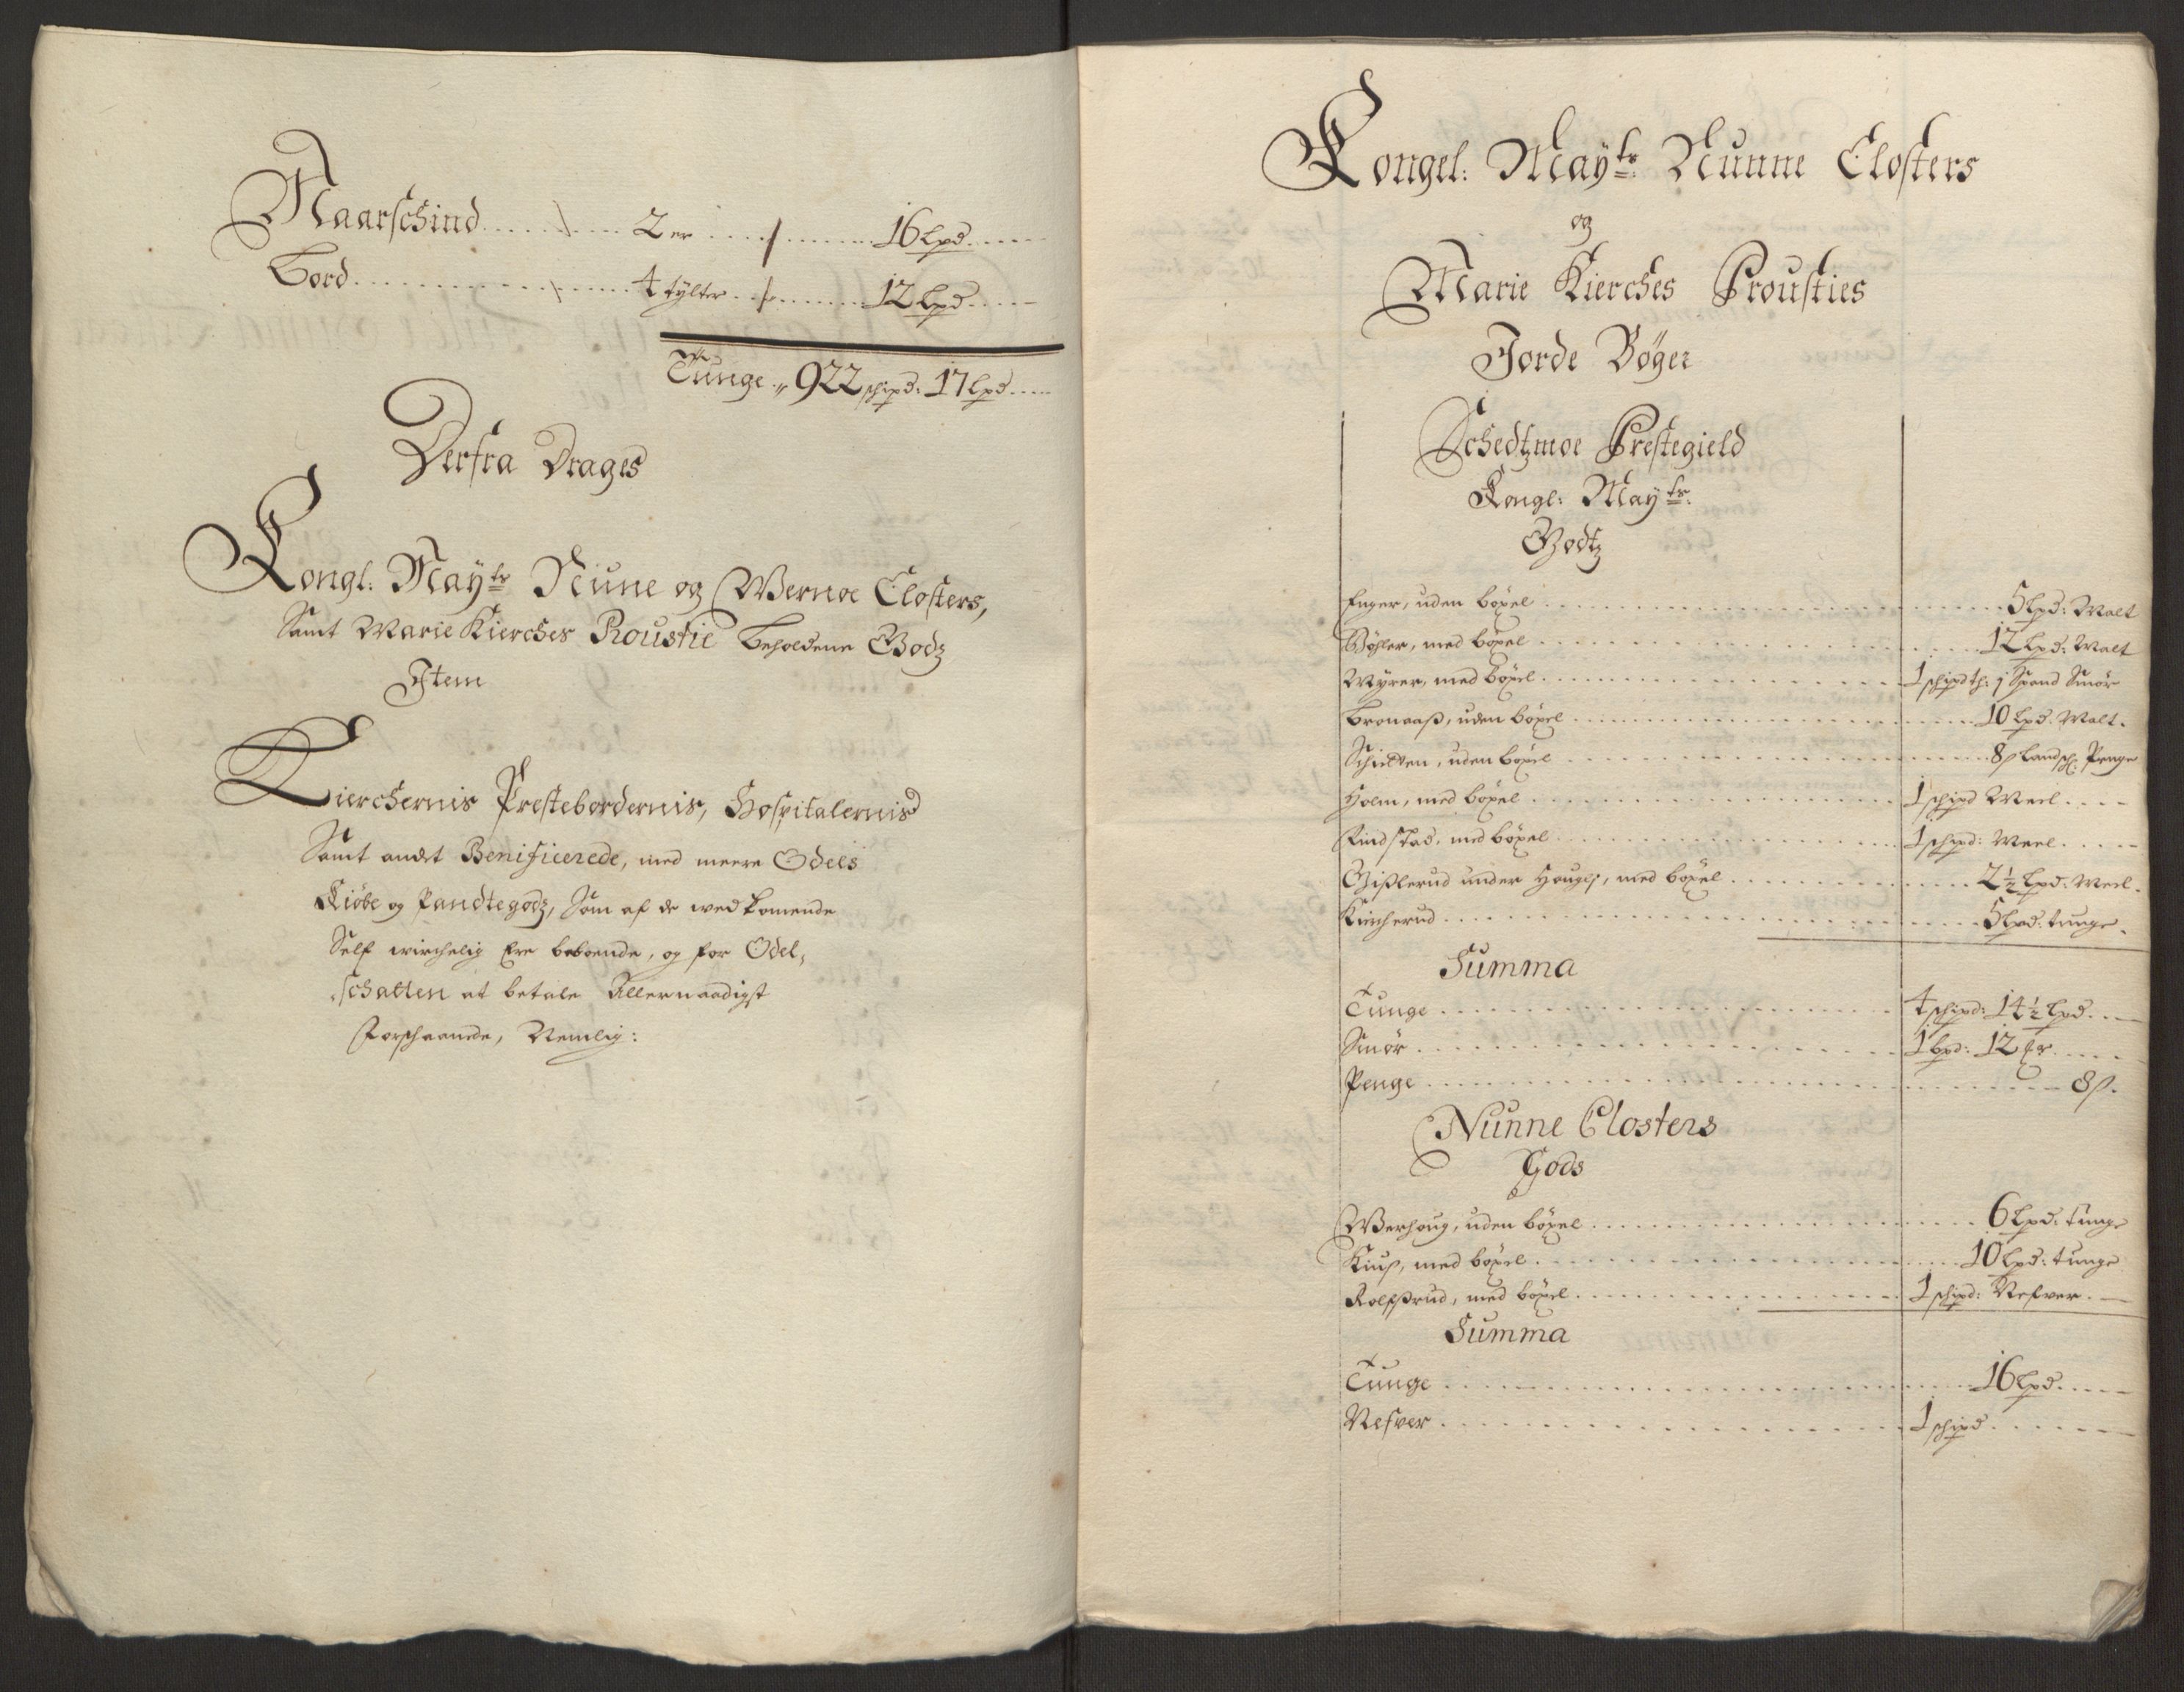 Maarschind ..... 2 er .... / ...... 16 lpd.
Bord ........ 4 tylter .. / ...... 12 lpd.
Tunge 922 schipd: 17 lpd
Derfra Drages
Kongl: May:ts Nune og Wernoe Closters,
Samt Marie Kierches Proustie beholdene Godz
Item
Kierchernis Prestebordernis, Hospitalernis
Samt andet Benificerede, med meere Odels
Kiøbe og Pandtegodz, Som af de wedkomende
Self wirchelig Ere beboende, og for Odel,
schatten at betale Allernaadigst
Forschaanede, Nemlig:
Kongel: May:ts Nunne Closters
og
Marie Kierches Prousties
Jorde Bøger
Schedtzmoe Prestegield
Kongl: May:ts
Godtz
Enger, uden böxel ...... 5 lpd: Malt
Bøhler, med böxel ...... 12 lpd: Malt
Myrer, med böxel ...... 1 schipd th: 1 Spand Smör
Bronaaß, uden böxel ...... 10 lpd. Malt.
Schietten, uden böxel ...... 8 ß landsch. Penge
Holm, med böxel ...... 1 schipd Meel
Rindstad, med böxel ...... 1 schipd: Meel
Gißlerud under Hougl, med böxel ...... 2½ lpd: Meel.
Kircherud ...... 5 lpd: tunge.
Summa
Tunge ...... 4 schipd: 14½ lpd.
Smör ...... 1 bpd: 12
Penge ...... 8 ß.
Nunne Closters
Gods
Werhoug, uden böxel ...... 6 lpd: tunge
Kiuß, med böxel ...... 10 lpd: tunge
Rolfßrud, med böxel ...... 1 schipd: Nefver.
Summa
Tunge ...... 16 lpd.
Nefver ...... 1 schipd